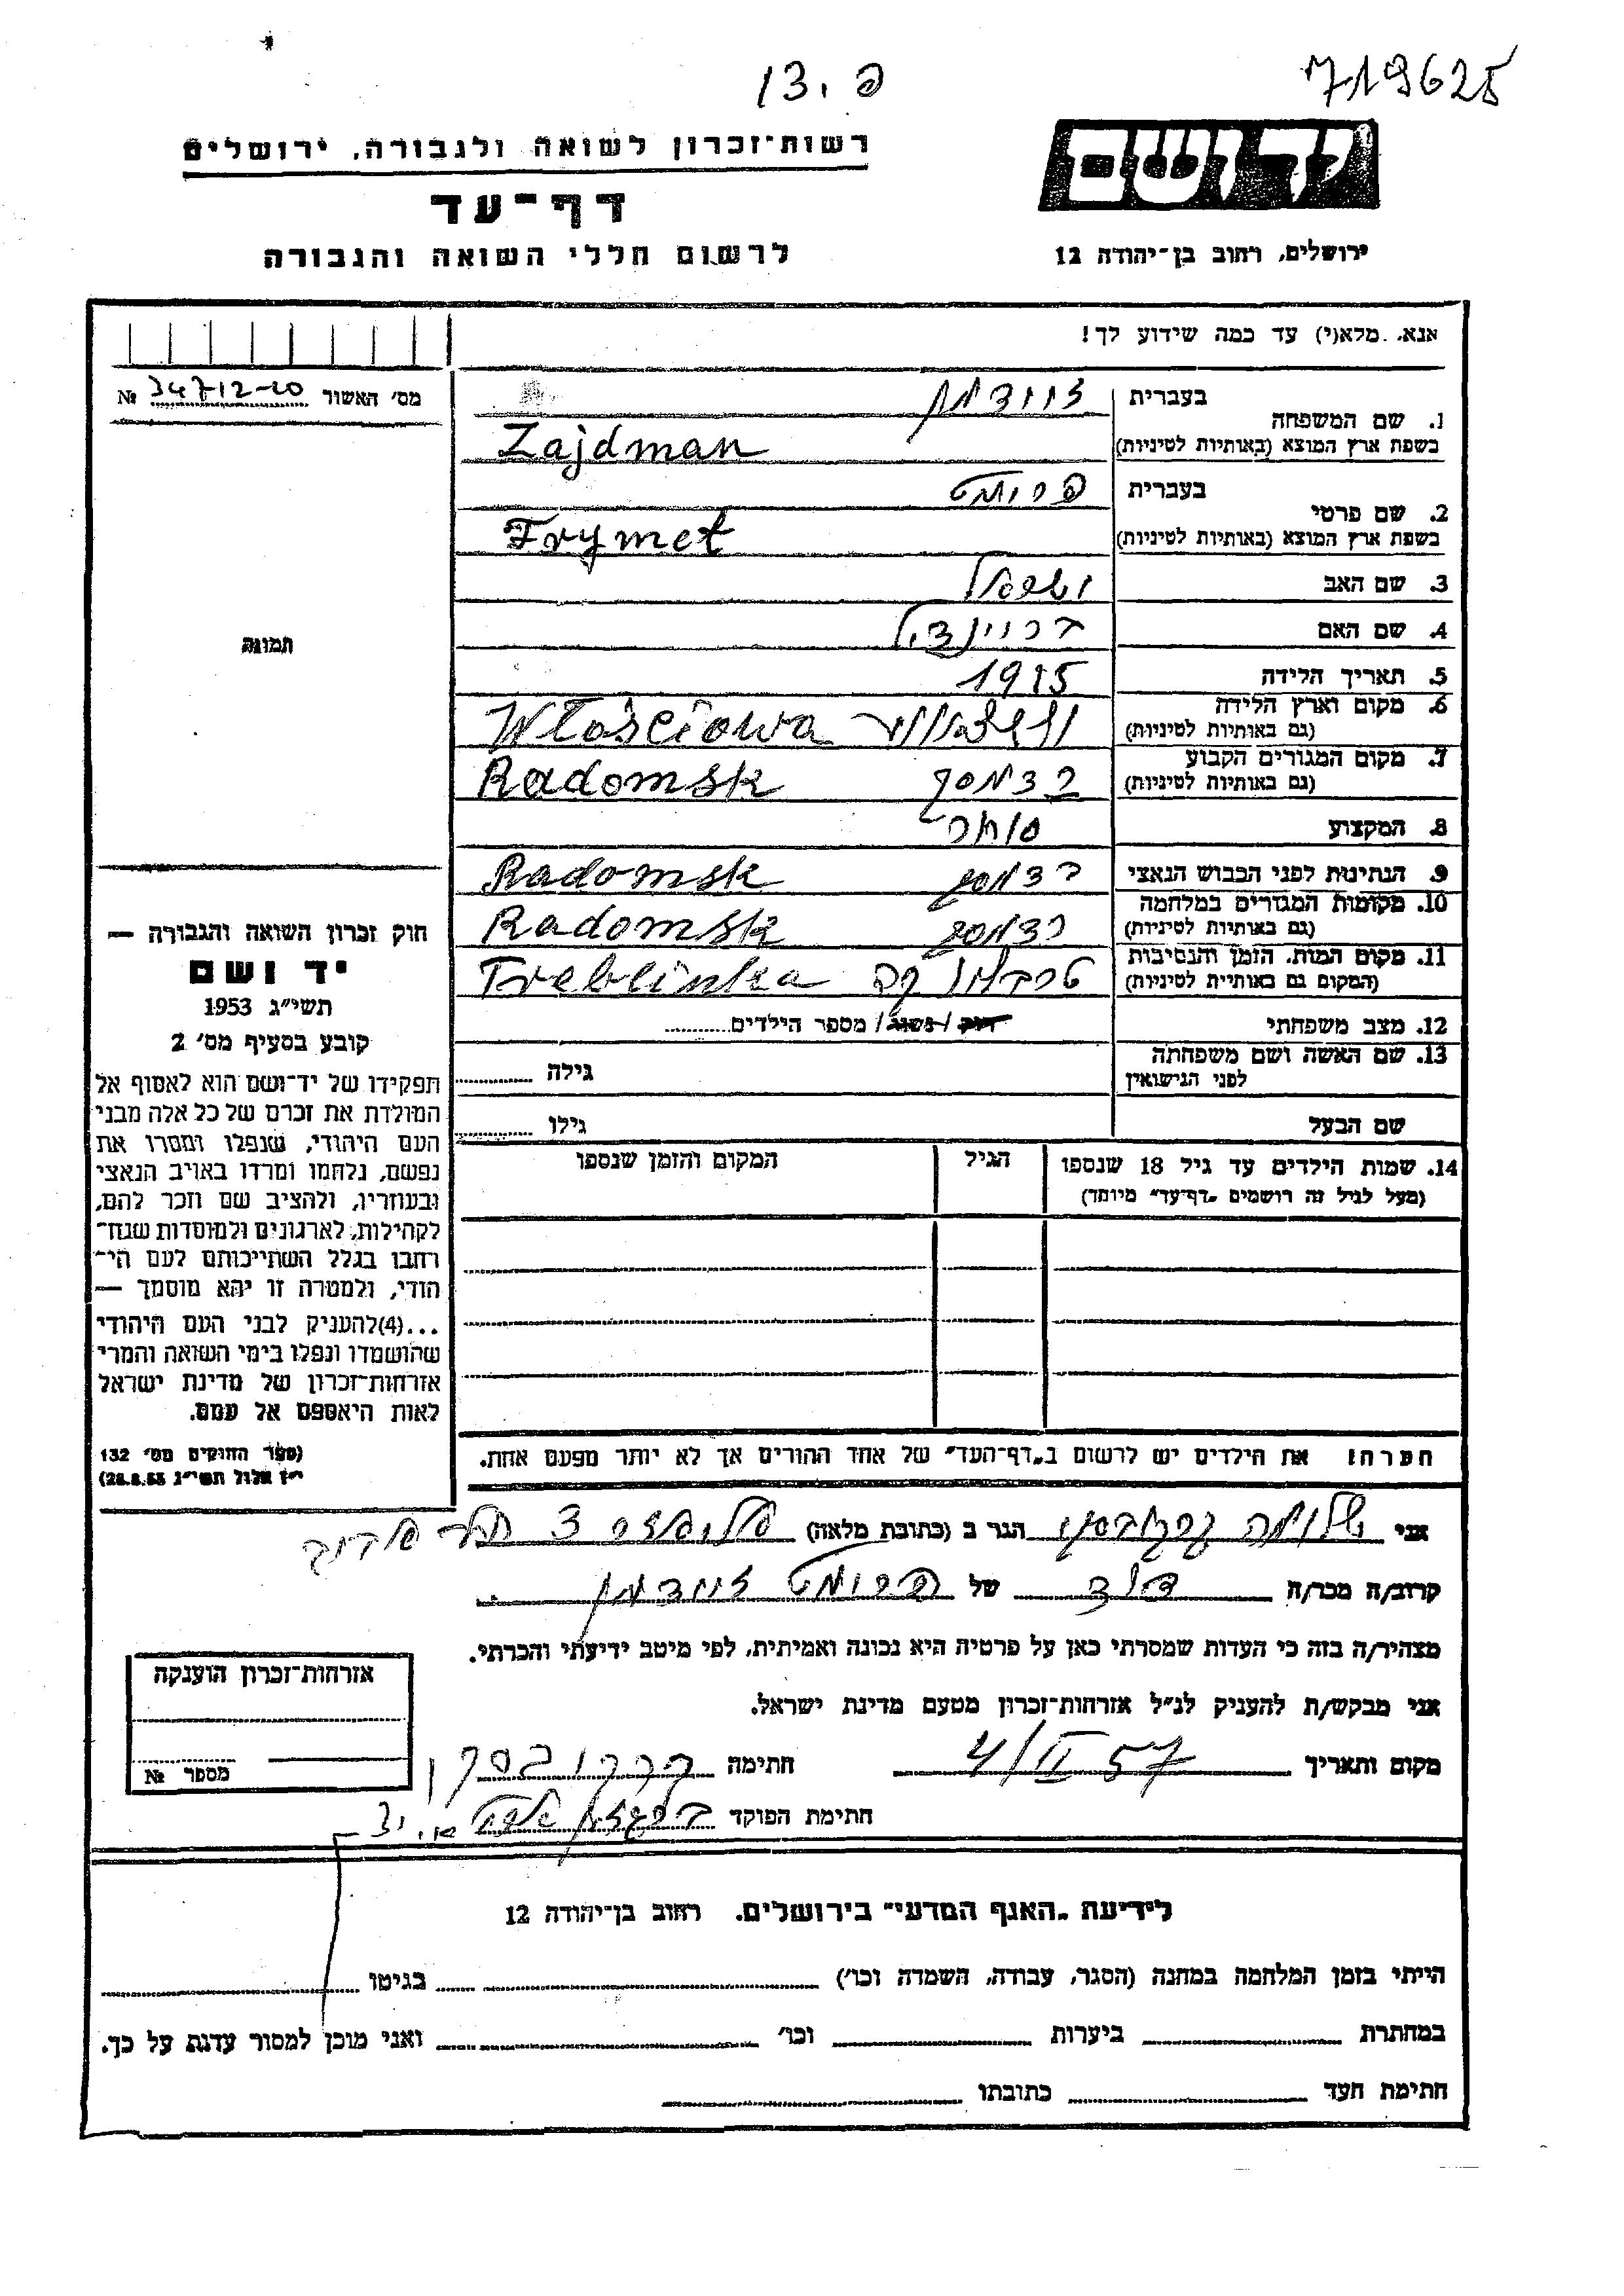 פ. 13/
719625
רשות־זכרון לשואה ולגבורה, ירושלים
יד ושם
דף־עד
לרשום חללי השואה והגבורה
ירושלים, רחוב בן־יהודה 12
אנא, מלא(י) עד כמה שידוע לך!
מס' האשור 34712-20 №
1. שם המשפחה בעברית זיידמן
בשפת ארץ המוצא (באותיות לטיניות) Zajdman
2. שם פרטי בעברית פרימט
בשפת ארץ המוצא (באותיות לטיניות) Frymet
3. שם האב ישראל
4. שם האם
5. תאריך הלידה 1915
6. מקום וארץ הלידה
(גם באותיות לטיניות) Włościowa
7. מקום המגורים הקבוע
(גם באותיות לטיניות) רדומסק Radomsk
8. המקצוע סוחר
9. הנתינות לפני הכבוש הנאצי רדומסק Radomsk
10. מקומות המגורים במלחמה
(גם באותיות לטיניות) רדומסק Radomsk
11. מקום המות, הזמן והנסיבות
(המקום גם באותיות לטיניות) טרבלינקה Treblinka
12. מצב משפחתי רווק / נשוי / מספר הילדים
13. שם האשה ושם משפחתה
לפני הנישואין גילה
שם הבעל גילו
14. שמות הילדים עד גיל 18 שנספו הגיל המקום והזמן שנספו
(מעל לגיל זה רושמים „דף־עד" מיוחד)
הערה: את הילדים יש לרשום ב„דף־העד" של אחד ההורים אך לא יותר מפעם אחת.
תמונה
חוק זכרון השואה והגבורה —
יד ושם
תשי"ג 1953
קובע בסעיף מס' 2
תפקידו של יד־ושם הוא לאסוף אל
המולדת את זכרם של כל אלה מבני
העם היהודי, שנפלו ומסרו את
נפשם, נלחמו ומרדו באויב הנאצי
ובעוזריו, ולהציב שם וזכר להם,
לקהילות, לארגונים ולמוסדות שנח־
רבו בגלל השתייכותם לעם הי־
הודי, ולמטרה זו יהא מוסמך —
...(4)להעניק לבני העם היהודי
שהושמדו ונפלו בימי השואה והמרי
אזרחות־זכרון של מדינת ישראל
לאות היאספם אל עמם.
(ספר החוקים מס' 132
י"ז אלול תשי"ג 28.8.53)
אני שלומה הגר ב (כתובת מלאה)
קרוב/ה מכר/ה דוד של פרימט זיידמן
מצהיר/ה בזה כי העדות שמסרתי כאן על פרטיה היא נכונה ואמיתית, לפי מיטב ידיעתי והכרתי.
אני מבקש/ת להעניק לנ"ל אזרחות־זכרון מטעם מדינת ישראל.
מקום ותאריך 4/II 57 חתימה
חתימת הפוקד
אזרחות־זכרון הוענקה
מספר №
לידיעת „האגף המדעי" בירושלים. רחוב בן־יהודה 12
הייתי בזמן המלחמה במחנה (הסגר, עבודה, השמדה וכו') בגיטו
במחתרת ביערות וכו' ואני מוכן למסור עדות על כך.
חתימת העד כתובתו